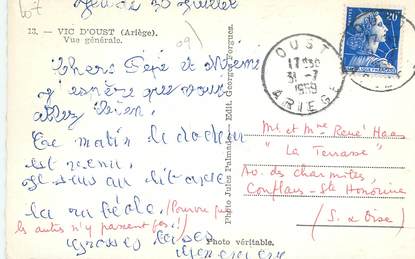 Jeudi 30 Juillet
13. — VIC D'OUST (Ariège).
Vue générale.
Chers Pépé et Mémé
J'espère que vous
allez bien.
Ce matin le docteur
est venu.
Je suis au lit avec
la rougeole. (Pourvu que
les autres n'y passent pas !)
Grosses bises
Photo Jules Palmade
Edit. Georges Forgues
Photo véritable.
OUST
17H30
31-7
1959
ARIEGE
20F
Mr et Mme René Haas
"La Terrasse"
Av. des charmilles,
Conflans-Ste Honorine
(S. & Oise)